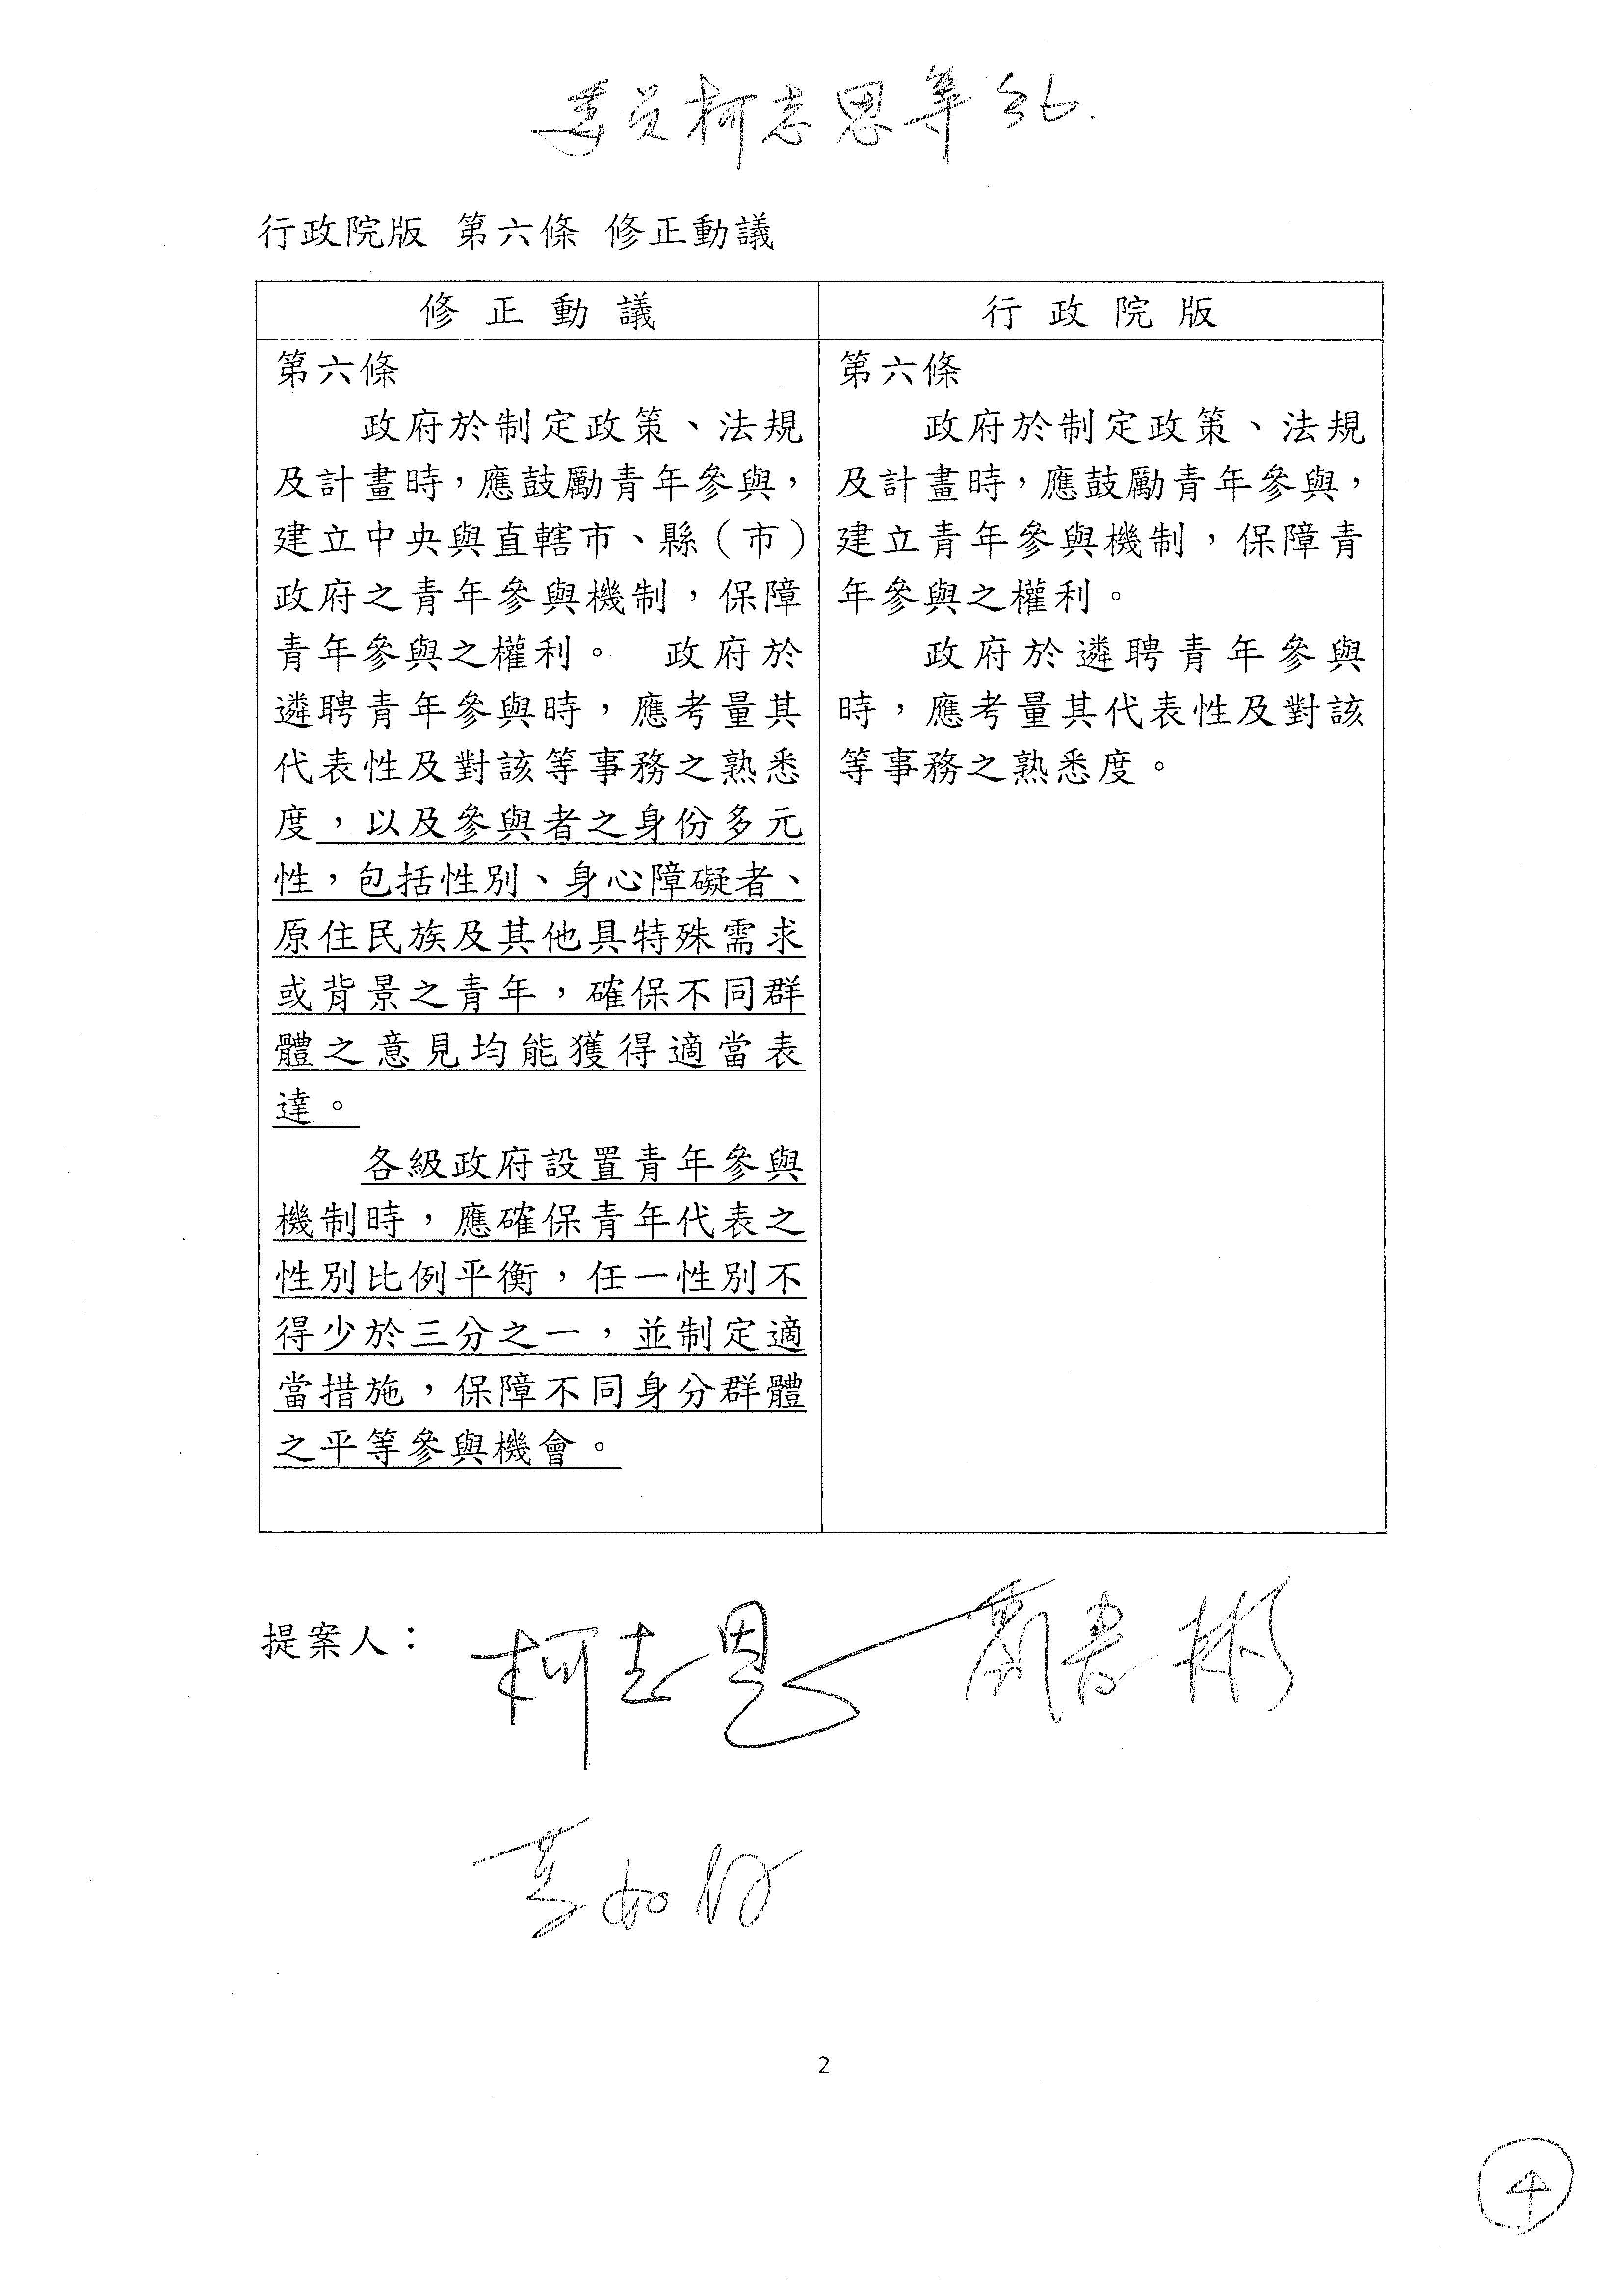 委員柯志恩等3人.
行政院版 第六條 修正動議
修正動議
行政院版
第六條
政府於制定政策、法規
及計畫時，應鼓勵青年參與，
建立中央與直轄市、縣（市）
政府之青年參與機制，保障
青年參與之權利。 政府於
遴聘青年參與時，應考量其
代表性及對該等事務之熟悉
度，以及參與者之身份多元
性，包括性別、身心障礙者、
原住民族及其他具特殊需求
或背景之青年，確保不同群
體之意見均能獲得適當表
達。
各級政府設置青年參與
機制時，應確保青年代表之
性別比例平衡，任一性別不
得少於三分之一，並制定適
當措施，保障不同身分群體
之平等參與機會。
第六條
政府於制定政策、法規
及計畫時，應鼓勵青年參與，
建立青年參與機制，保障青
年參與之權利。
政府於遴聘青年參與
時，應考量其代表性及對該
等事務之熟悉度。
提案人：
柯志恩 劉書彬
2
4